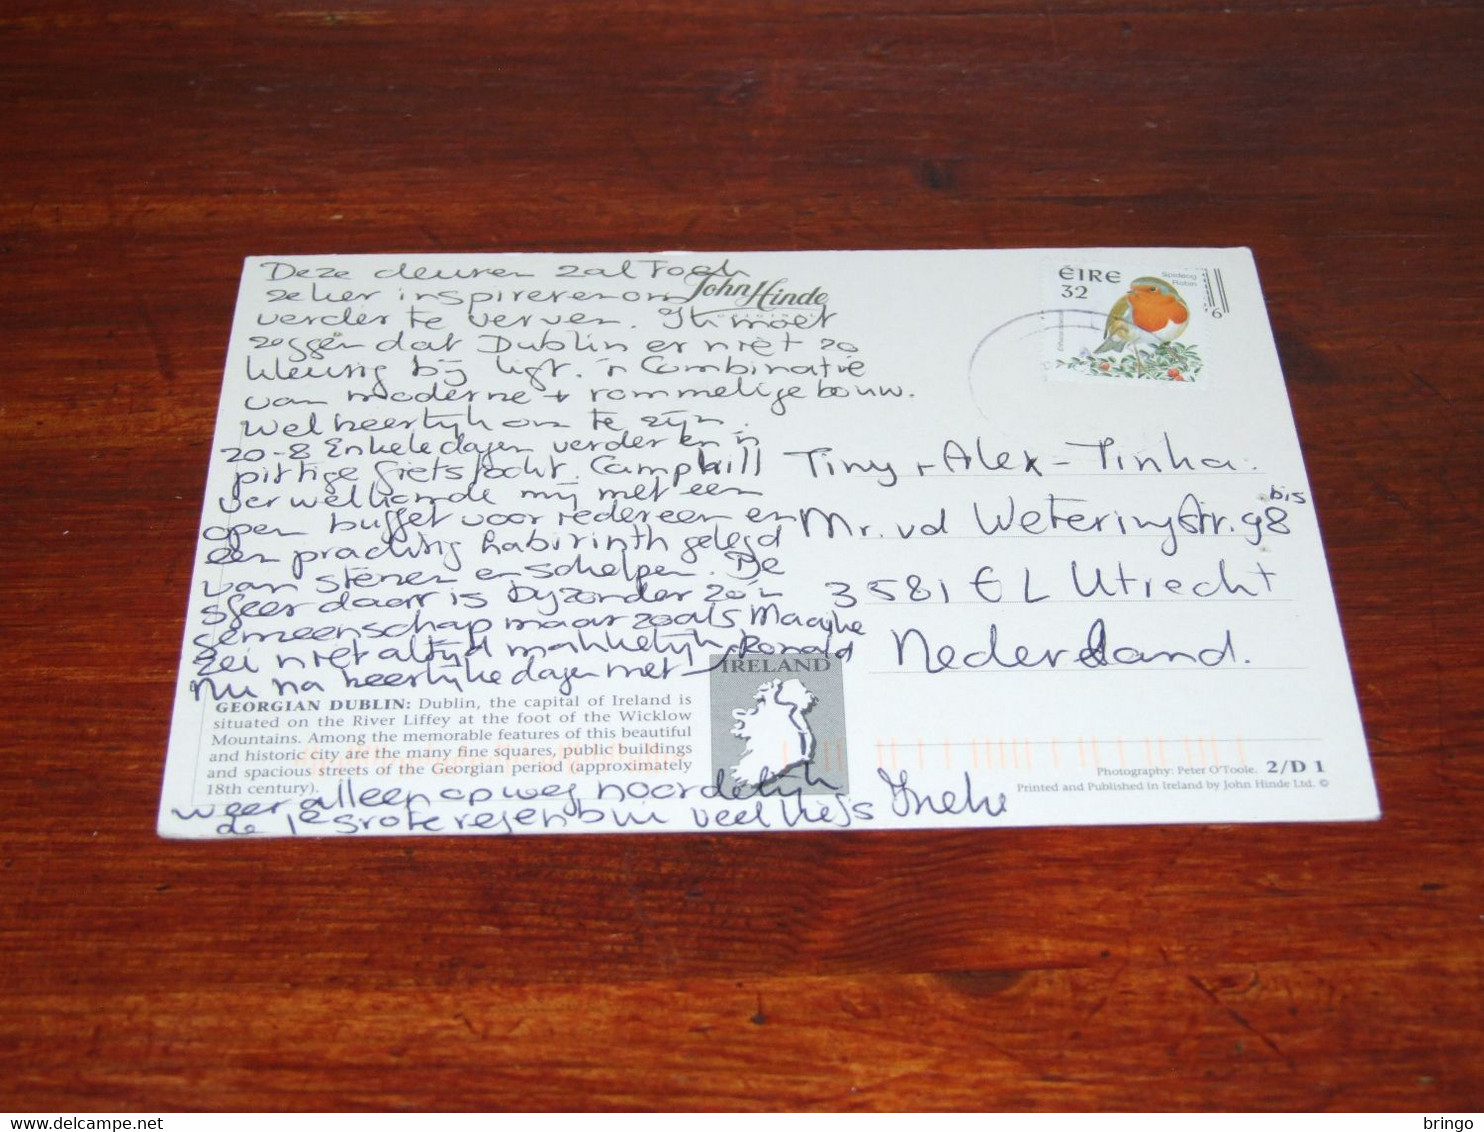 Deze deuren zal toch
zeker inspireren om
verder te verven. Ik moet
zeggen dat Dublin er niet zo
kleurig bij ligt. 'n Combinatie
van moderne + rommelige bouw.
Wel heerlijk om te zijn.
20-8 Enkele dagen verder en 'n
pittige fietstocht. Camphill
verwelkomde mij met een
open buffet voor iedereen en
een prachtig labirinth gelegd
van stenen en schelpen. De
sfeer daar is bijzonder zo'n
gemeenschap maar zoals Maayke
zei niet altijd makkelijk.
Nu na heerlijke dagen met Ronald
weer alleen op weg noordelijk
de 1e grote regenbui veel liefs Ineke
John Hinde
ORIGINAL
ÉIRE
32
Spideog
Robin
6
Tiny + Alex - Tinka.
Mr. vd Weteringstr. 98 bis
3581 EL Utrecht
Nederland.
IRELAND
GEORGIAN DUBLIN: Dublin, the capital of Ireland is
situated on the River Liffey at the foot of the Wicklow
Mountains. Among the memorable features of this beautiful
and historic city are the many fine squares, public buildings
and spacious streets of the Georgian period (approximately
18th century).
Photography: Peter O'Toole. 2/D 1
Printed and Published in Ireland by John Hinde Ltd. ©
delcampe.net
bringo